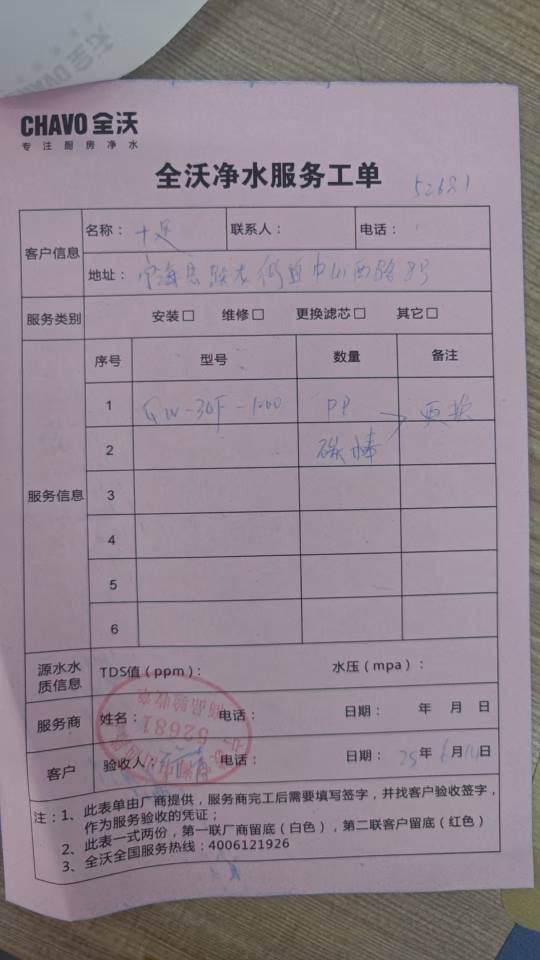 CHAVO 全沃
专注厨房净水
全沃净水服务工单
52681
客户信息
名称： 十足 联系人： 电话：
地址： 宁海县跃龙街道中山西路 号
服务类别 安装□ 维修□ 更换滤芯□ 其它□
服务信息
序号 型号 数量 备注
1 QW-30F-1000 PP 更换
2 碳棒
3
4
5
6
源水水质信息 TDS值（ppm）： 水压（mpa）：
服务商 姓名： 电话： 日期： 年 月 日
客户 验收人： 电话： 日期： 25年6月 日
商品验收章
52681
注：1、此表单由厂商提供，服务商完工后需要填写签字，并找客户验收签字，
作为服务验收的凭证；
2、此表一式两份，第一联厂商留底（白色），第二联客户留底（红色）
3、全沃全国服务热线：4006121926